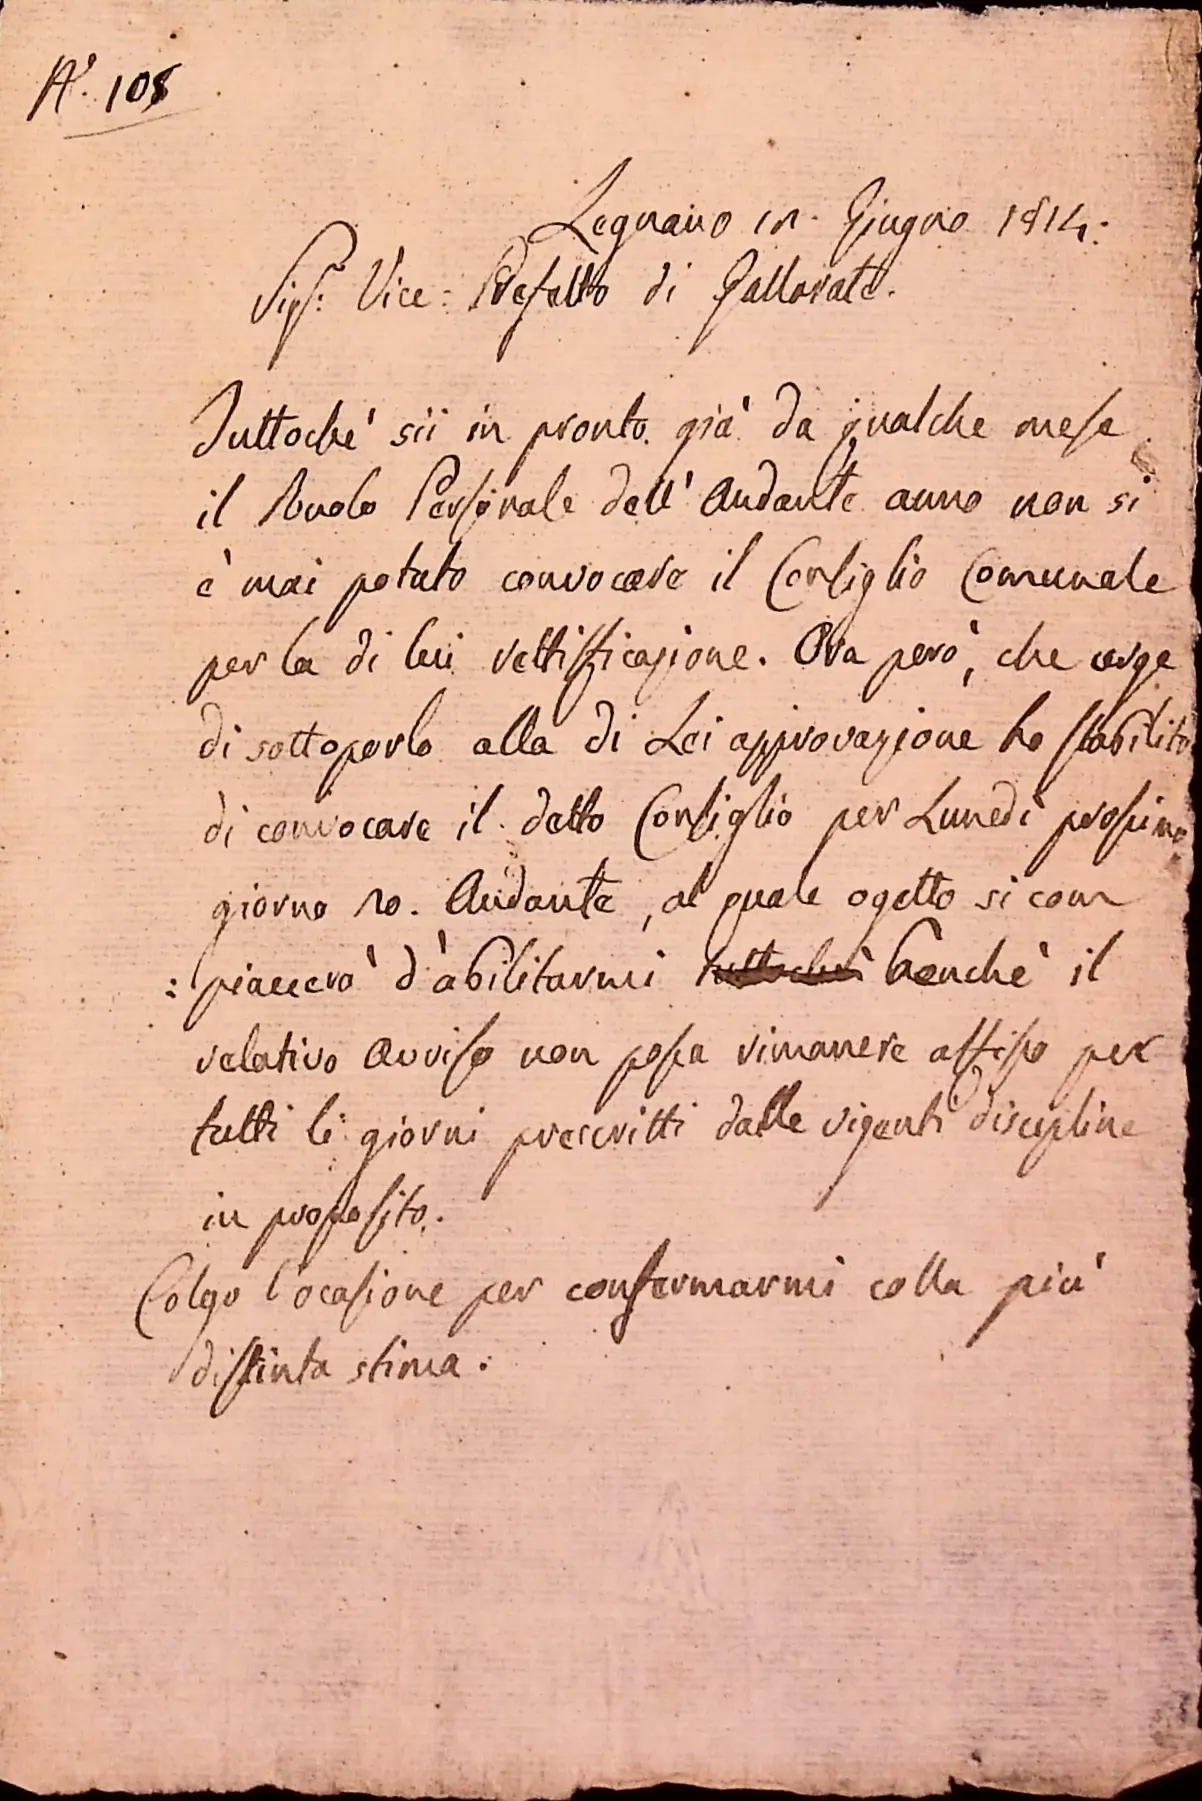 N.° 108
Legnano in Giugno 1814:
Sig.r: Vice: Prefetto di Gallarate.
Tuttochè sii in pronto già da qualche mese
il Ruolo Personale dell' Andante anno non si
è mai potuto convocare il Consiglio Comunale
per la di lui rettifficazione. Ora però, che urge
di sottoporlo alla di Lei approvazione ho stabilito
di convocare il detto Consiglio per Lunedì prossimo
giorno 20. Andante, al quale ogetto si com
: piacerà d'abilitarmi tuttochè benchè il
relativo Avviso non possa rimanere affisso per
tutti li giorni prescritti dalle vigenti discipline
in proposito.
Colgo l'ocasione per confermarmi colla più
distinta stima.